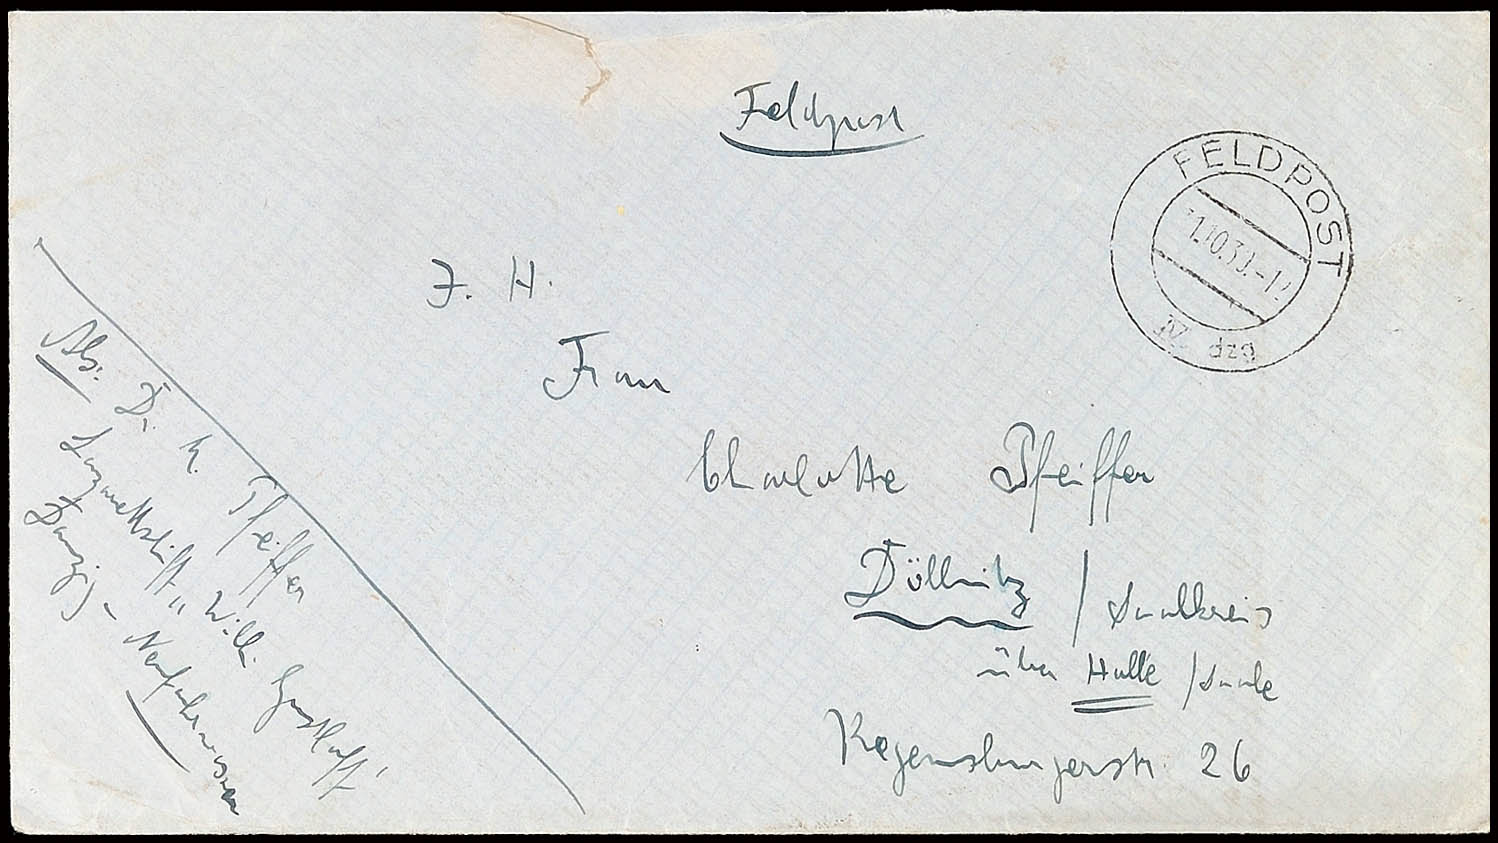 Feldpost
FELDPOST
1.10.39.-12
dzg
F. H.
Frau
Charlotte Pfeiffer
Döllnitz / Saalkreis
über Halle / Saale
Regensburgerstr. 26
Abs: Dr. K. Pfeiffer
Lazarettschiff „Wilh. Gustloff“
Danzig - Neufahrwasser